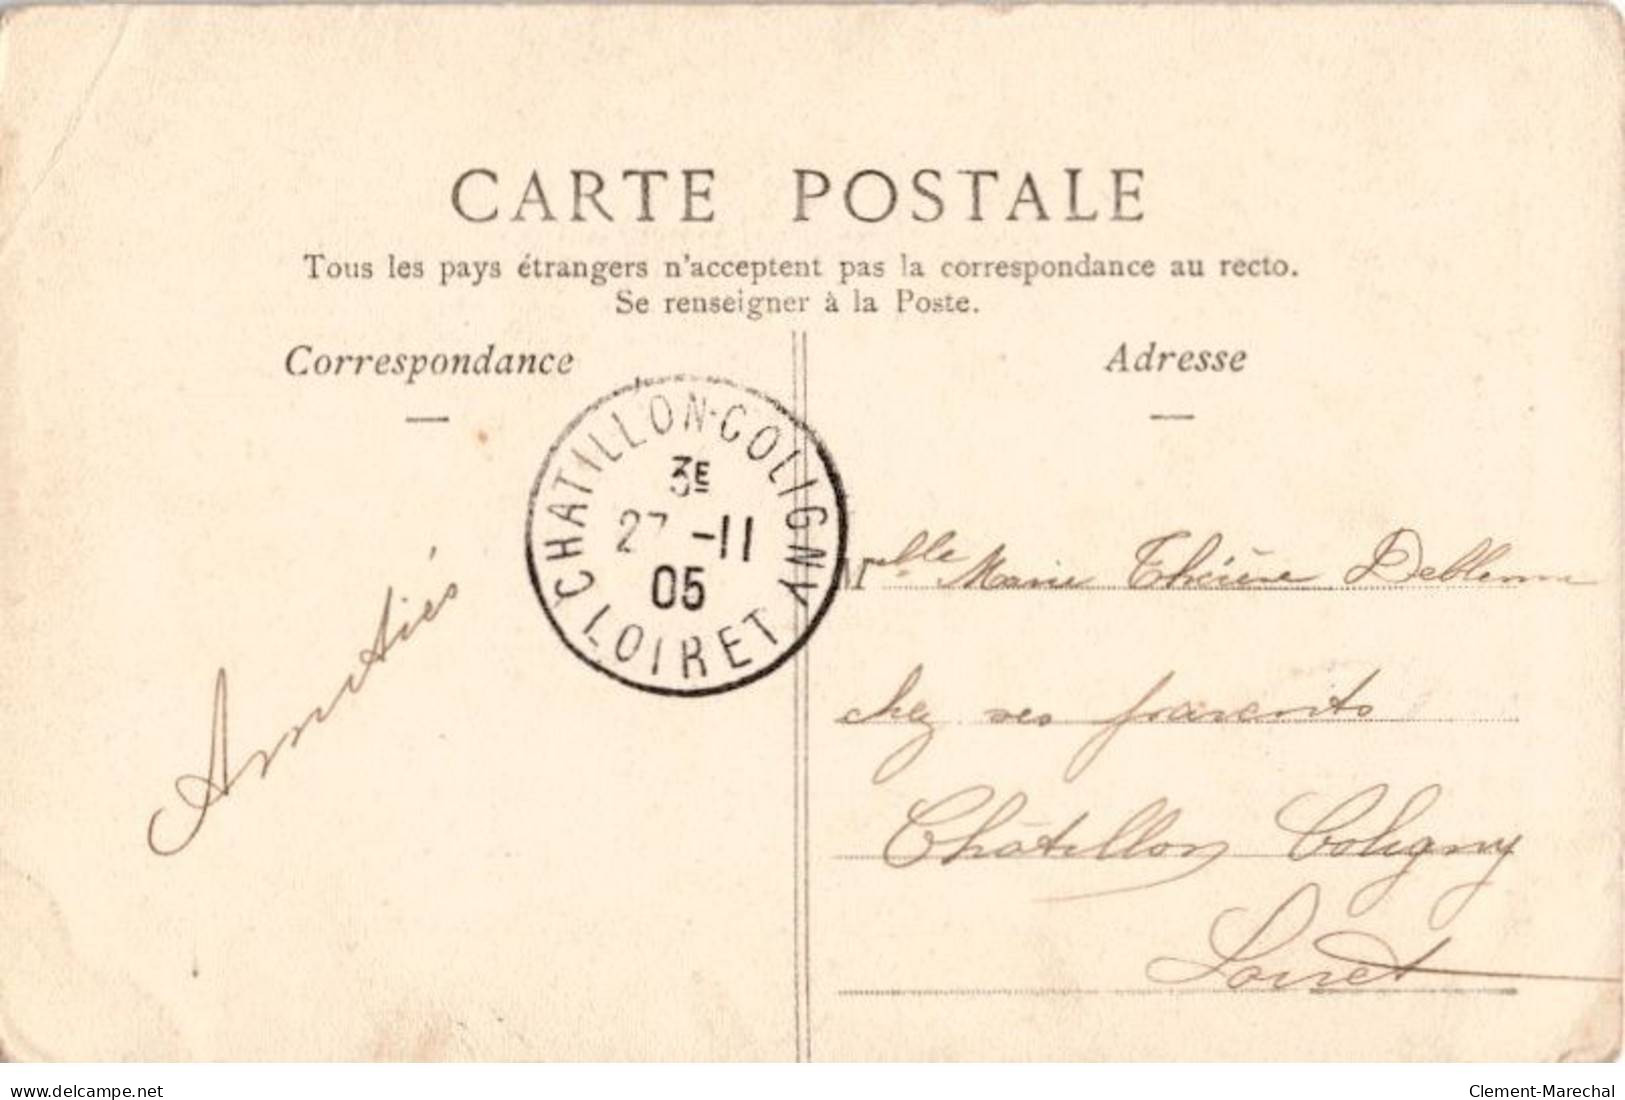 CARTE POSTALE
Tous les pays étrangers n'acceptent pas la correspondance au recto.
Se renseigner à la Poste.
Correspondance
Adresse
CHATILLON-COLIGNY
3E
27 -11
05
LOIRET
Amitiés
Melle Marie Thérèse
chez ses parents
Châtillon Coligny
Loiret
www.delcampe.net
Clement-Marechal